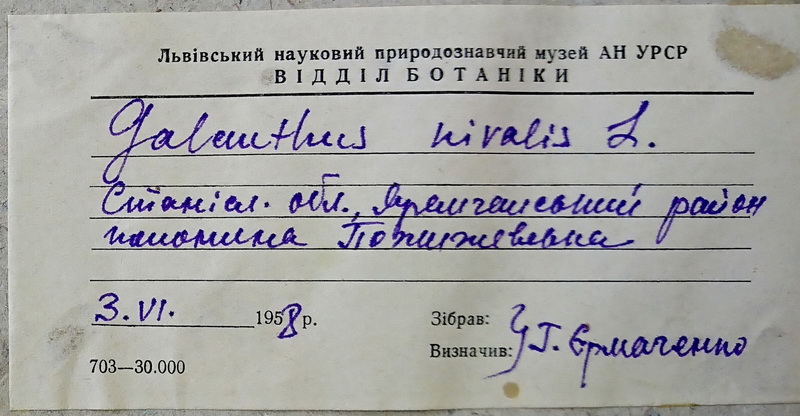 Львівський науковий природознавчий музей АН УРСР
ВІДДІЛ БОТАНІКИ
Galanthus nivalis L.
Станісл. обл., Яремчанський район
полонина Пожижевська
3.VI. 1958 р.
Зібрав:
Визначив: Г. Єрмаченко
703—30.000